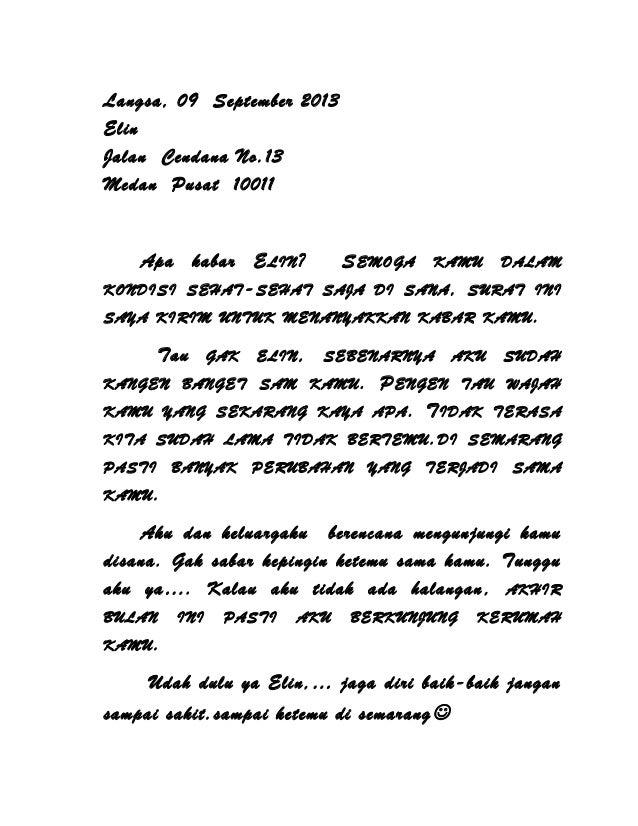 Langsa, 09 September 2013
Elin
Jalan Cendana No.13
Medan Pusat 10011
Apa kabar ELIN? SEMOGA KAMU DALAM
KONDISI SEHAT-SEHAT SAJA DI SANA, SURAT INI
SAYA KIRIM UNTUK MENANYAKKAN KABAR KAMU.
TAU GAK ELIN, SEBENARNYA AKU SUDAH
KANGEN BANGET SAM KAMU. PENGEN TAU WAJAH
KAMU YANG SEKARANG KAYA APA. TIDAK TERASA
KITA SUDAH LAMA TIDAK BERTEMU.DI SEMARANG
PASTI BANYAK PERUBAHAN YANG TERJADI SAMA
KAMU.
Aku dan keluargaku berencana mengunjungi kamu
disana. Gak sabar kepingin ketemu sama kamu. Tunggu
aku ya.... Kalau aku tidak ada halangan, AKHIR
BULAN INI PASTI AKU BERKUNJUNG KERUMAH
KAMU.
Udah dulu ya Elin,... jaga diri baik-baik jangan
sampai sakit.sampai ketemu di semarang☺